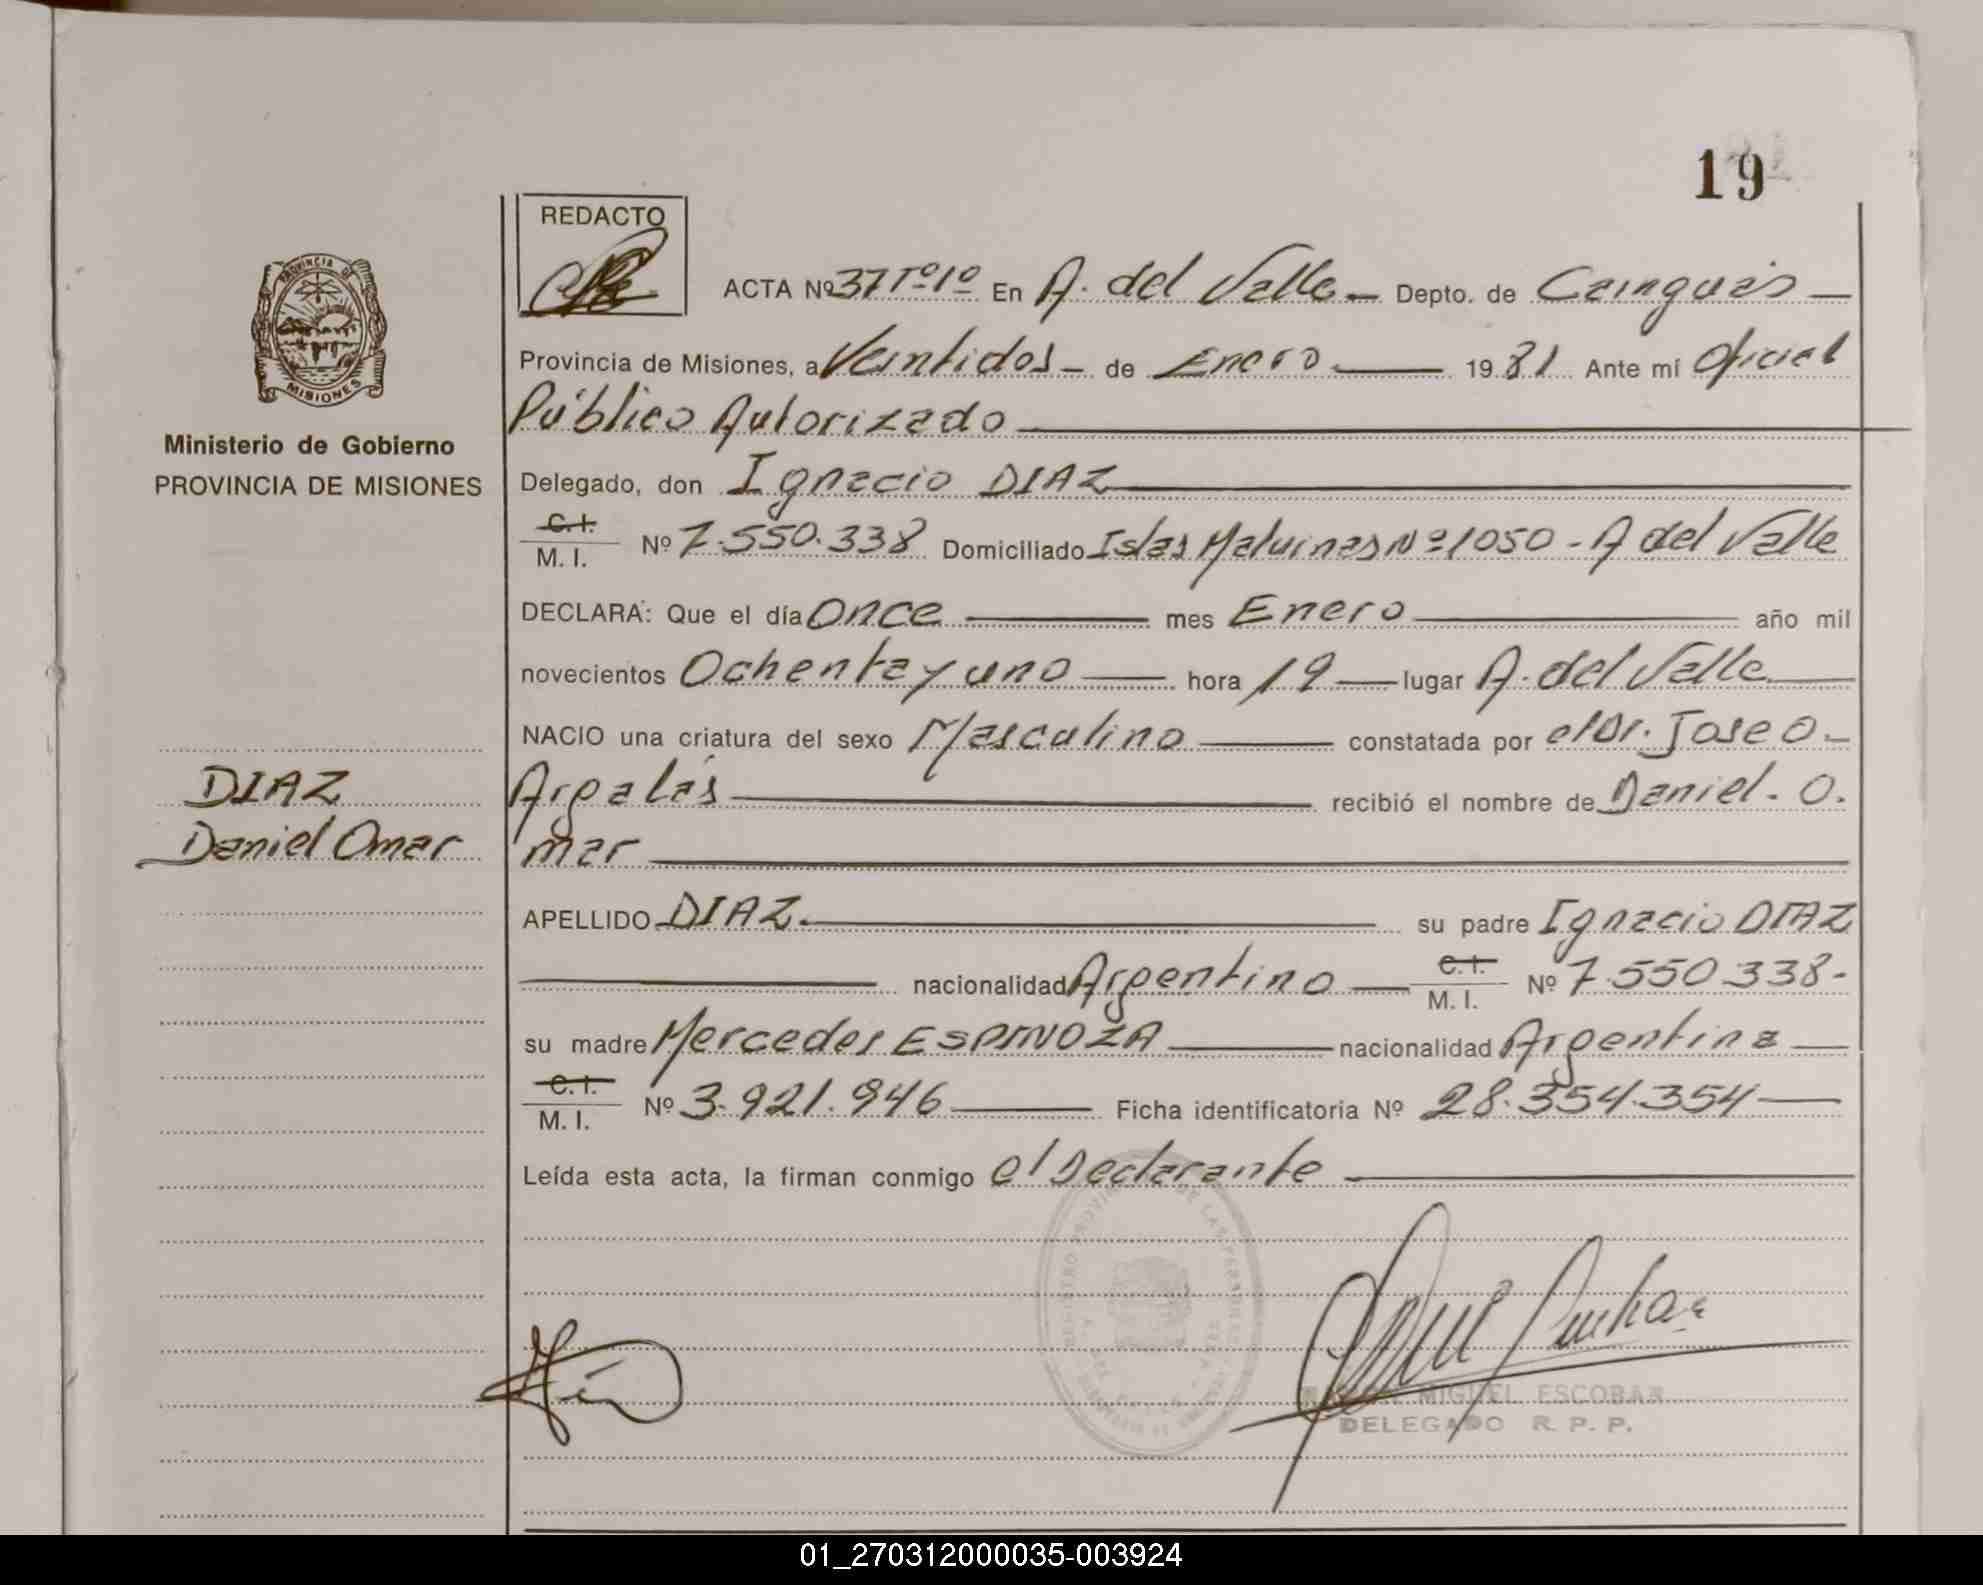 19
REDACTO
PROVINCIA DE
MISIONES
Ministerio de Gobierno
PROVINCIA DE MISIONES
ACTA Nº 37 Tº 1º En A. del Valle Depto. de Cainguás
Provincia de Misiones, a Veintidos de Enero 1981 Ante mí Oficial
Público Autorizado
Delegado, don Ignacio DIAZ
C. I.
M. I. Nº 7.550.338 Domiciliado Islas Malvinas Nº 1050 - A del Valle
DECLARA: Que el día Once mes Enero año mil
novecientos Ochenta y uno hora 19 lugar A. del Valle
NACIO una criatura del sexo Masculino constatada por el Dr. Jose O.
recibió el nombre de Daniel. O.
mar
DIAZ
Daniel Omar
APELLIDO DIAZ su padre Ignacio DIAZ
nacionalidad Argentino C. I.
M. I. Nº 7.550.338-
su madre Mercedes ESPINOZA nacionalidad Argentina
C. I.
M. I. Nº 3.921.946 Ficha identificatoria Nº 28.354.354
Leída esta acta, la firman conmigo el Declarante
MIGUEL ESCOBAR
DELEGADO R. P. P.
01_270312000035-003924